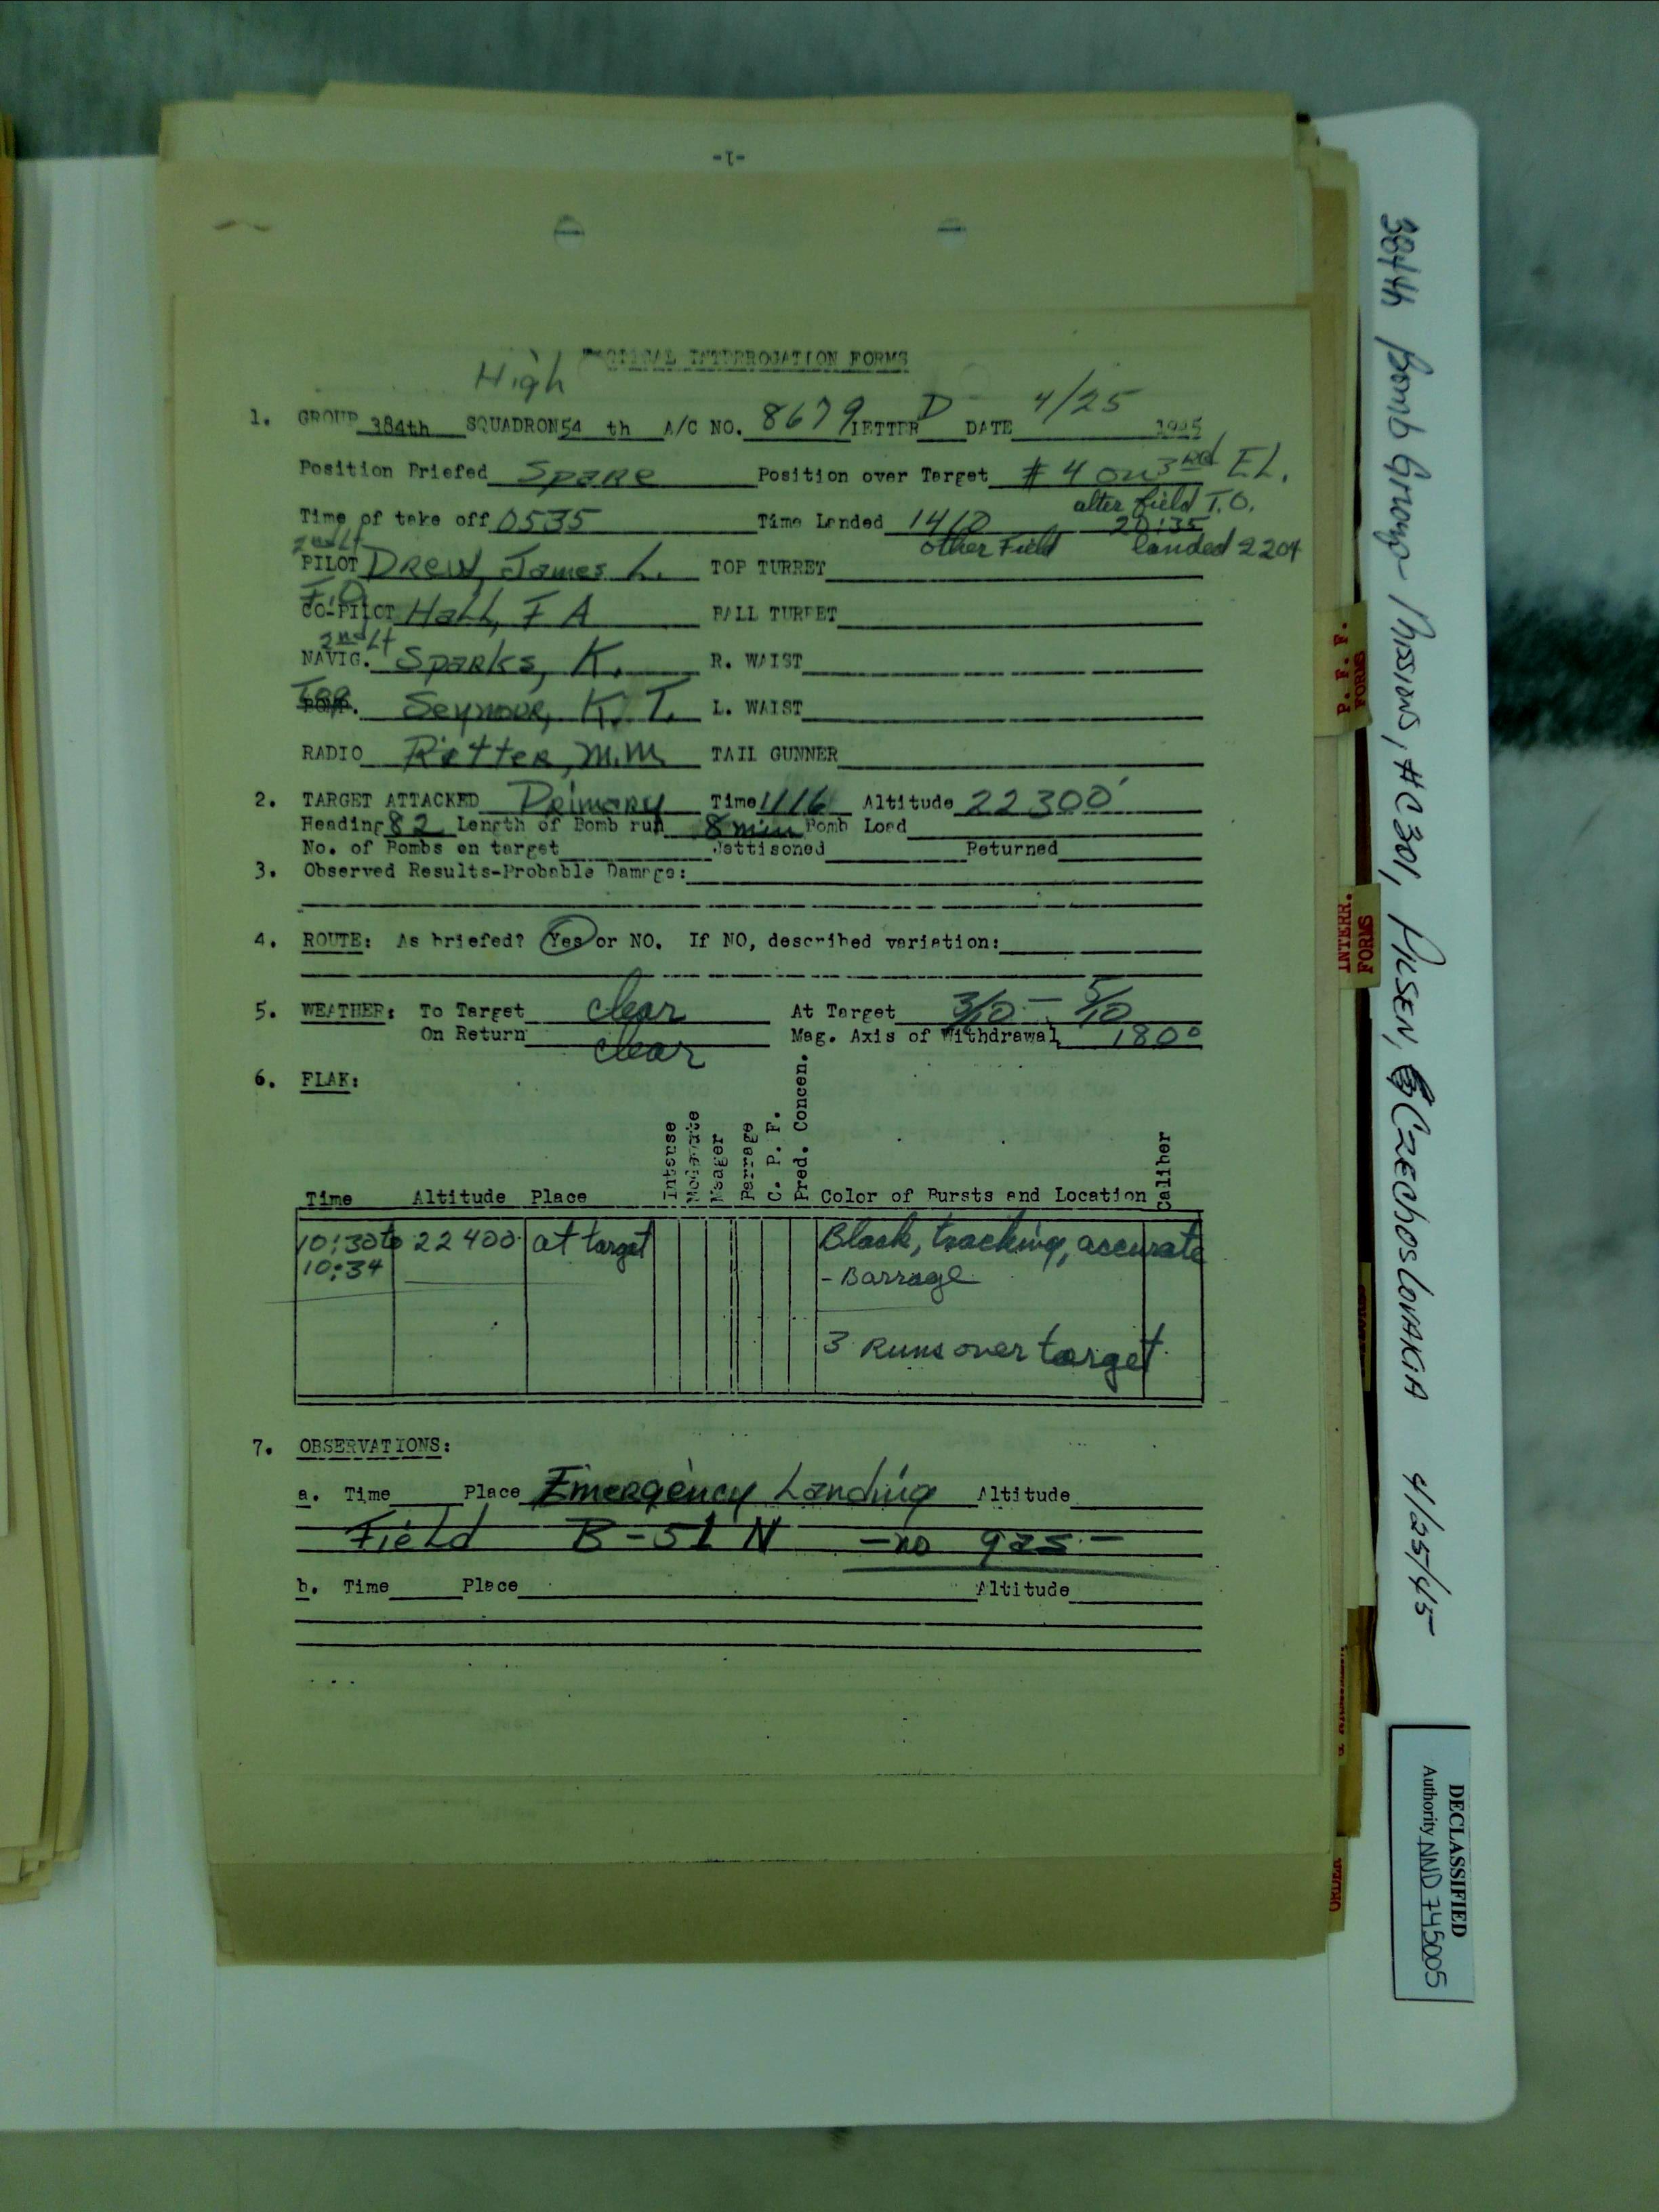 -1-
INTERROGATION FORMS
High
1. GROUP 384th SQUADRON 54 th A/C NO. 8679 LETTER D DATE 4/25 1945
Position Briefed Spare Position over Target #4 on 3rd EL.
after field T.O.
Time of take off 0535 Time Landed 1410 20:35
other Field landed 2204
2nd Lt
PILOT Drew, James L. TOP TURRET
F.O.
CO-PILOT Hall, F A BALL TURRET
2nd Lt
NAVIG. Sparks, K. R. WAIST
Tog. Seymour, K. T. L. WAIST
RADIO Ritter, M.M. TAIL GUNNER
2. TARGET ATTACKED Primary Time 1116 Altitude 22300'
Heading 82 Length of Bomb run 8 min Bomb Load
No. of Bombs on target Jettisoned Returned
3. Observed Results-Probable Damage:
4. ROUTE: As briefed? Yes or NO. If NO, described variation:
5. WEATHER: To Target clear At Target 3/10 - 5/10
On Return clear Mag. Axis of Withdrawal 180°
6. FLAK:
Time Altitude Place Intsuse Moderate Meager Barrage C. P. F. Pred. Concen. Color of Bursts and Location Caliber
10:30 to 22400 at target Black, tracking, accurate
10:34 - Barrage
3 Runs over target
7. OBSERVATIONS:
a. Time Place Emergency Landing Altitude
Field B-51 N - no gas -
b. Time Place Altitude
P. F. F.
FORMS
INTERR.
FORMS
ORDER
384th Bomb Group Missions, #C301, PILSEN, CZECHOSLOVAKIA 4/25/45
DECLASSIFIED
Authority NND 745005